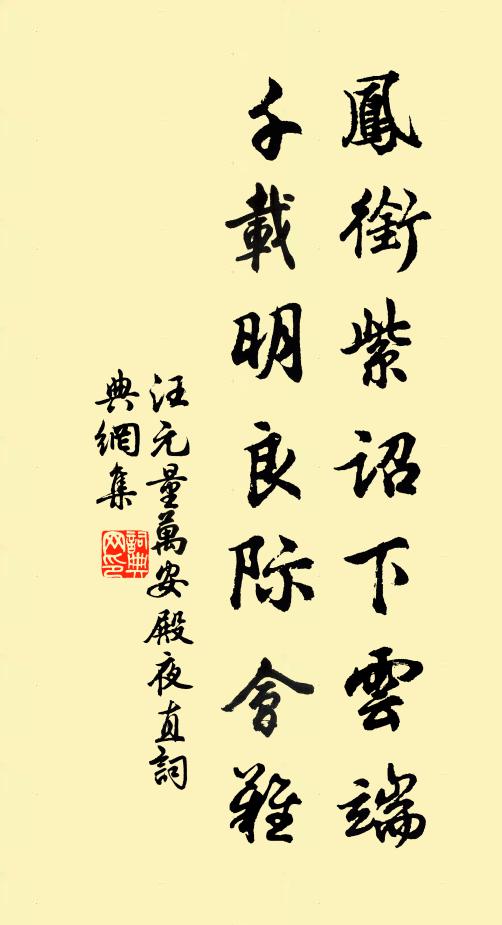 鳳銜紫詔下雲端
千載明良際會難
汪元量萬安殿夜直詞
典網集
詞典
网印